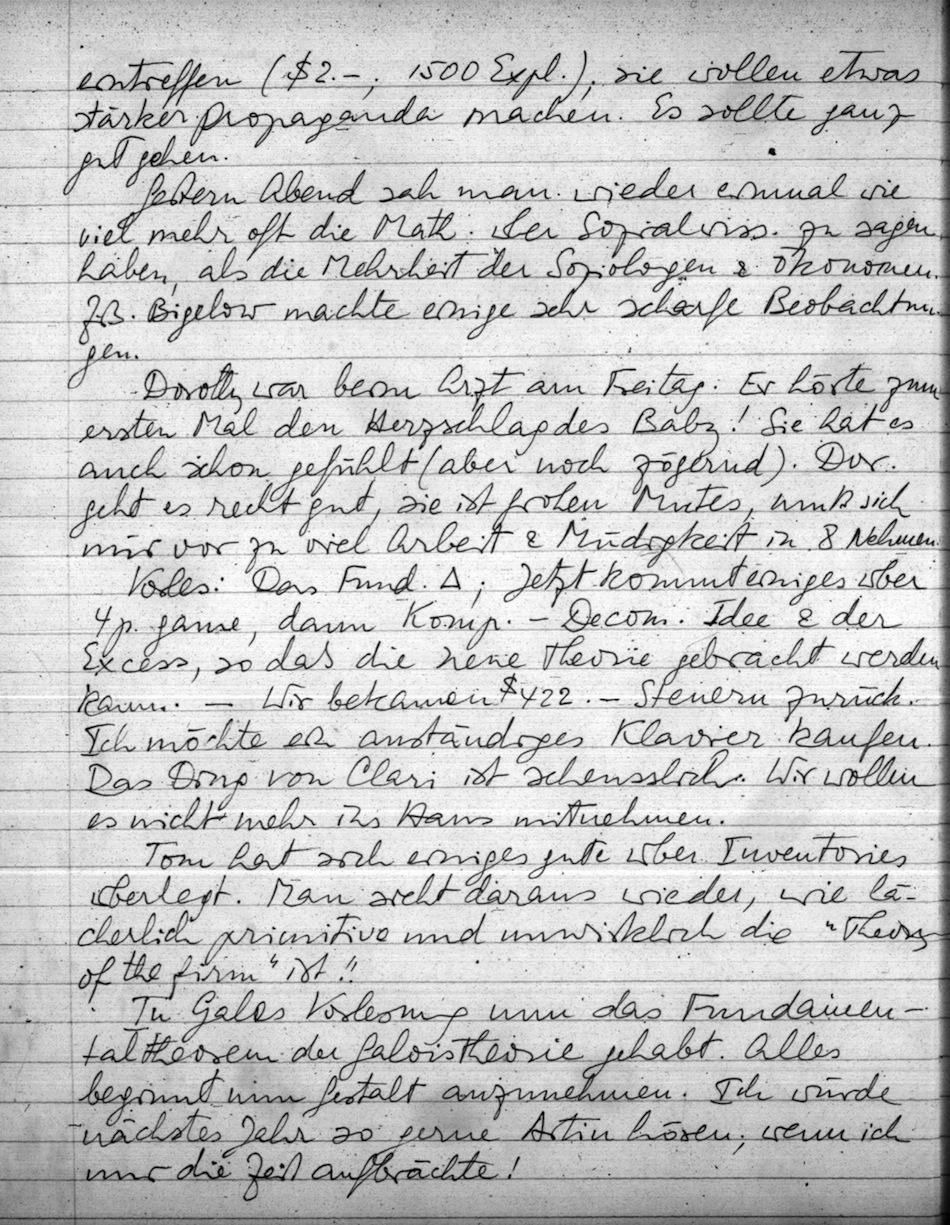 eintreffen ($2.-, 1500 Expl.), sie wollen etwas
stärker Propaganda machen. Es sollte ganz
gut gehen.
Gestern Abend sah man wieder einmal wie
viel mehr oft die Math. über Sozialwiss. zu sagen
haben, als die Mehrheit der Soziologen & Ökonomen.
z.B. Bigelow machte einige sehr scharfe Beobachtun-
gen.
Dorothy war beim Arzt am Freitag. Er hörte zum
ersten Mal den Herzschlag des Baby! Sie hat es
auch schon gefühlt (aber noch zögernd). Dor.
geht es recht gut, sie ist frohen Mutes, muss sich
nur vor zu viel Arbeit & Müdigkeit in 8 Nehmen.
Vorles: Das Fund. Δ; Jetzt kommt einiges über
4 p. game, dann Komp. - Decom. Idee & der
Excess, so daß die neue Theorie gebracht werden
kann. — Wir bekamen $422.- Steuern zurück.
Ich möchte ein anständiges Klavier kaufen.
Das Ding von Clari ist scheusslich. Wir wollen
es nicht mehr ins Haus mitnehmen.
Tom hat sich einiges gute über Inventories
überlegt. Man sieht daraus wieder, wie lä-
cherlich primitive und unwirklich die "Theory
of the firm" ist!!
In Gales Vorlesung nun das Fundamen-
taltheorem der Galoistheorie gehabt. Alles
beginnt nun Gestalt anzunehmen. Ich würde
nächstes Jahr so gerne Artin hören, wenn ich
nur die Zeit aufbrächte!